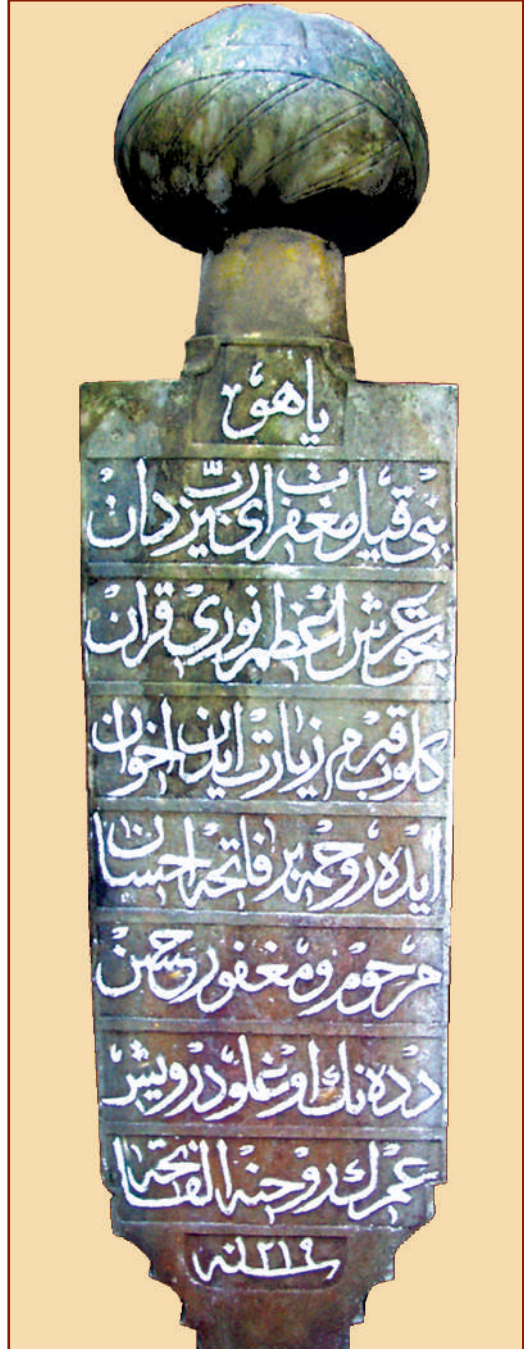 یا هو
بنی قیل مغفرت ای رب یزدان
بحق عرش اعظم نوری قران
کلوب قبرم زیارت ایدن اخوان
ایده روحمه بر فاتحه احسان
مرحوم و مغفور حسن
دده نك اوغلو درویش
عمرك روحنه الفاتحه
سنه ١٢١٩